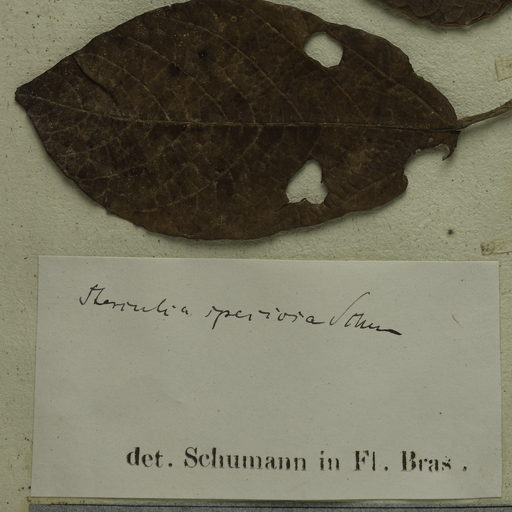 Sterculia speciosa Schum
det. Schumann in Fl. Bras.